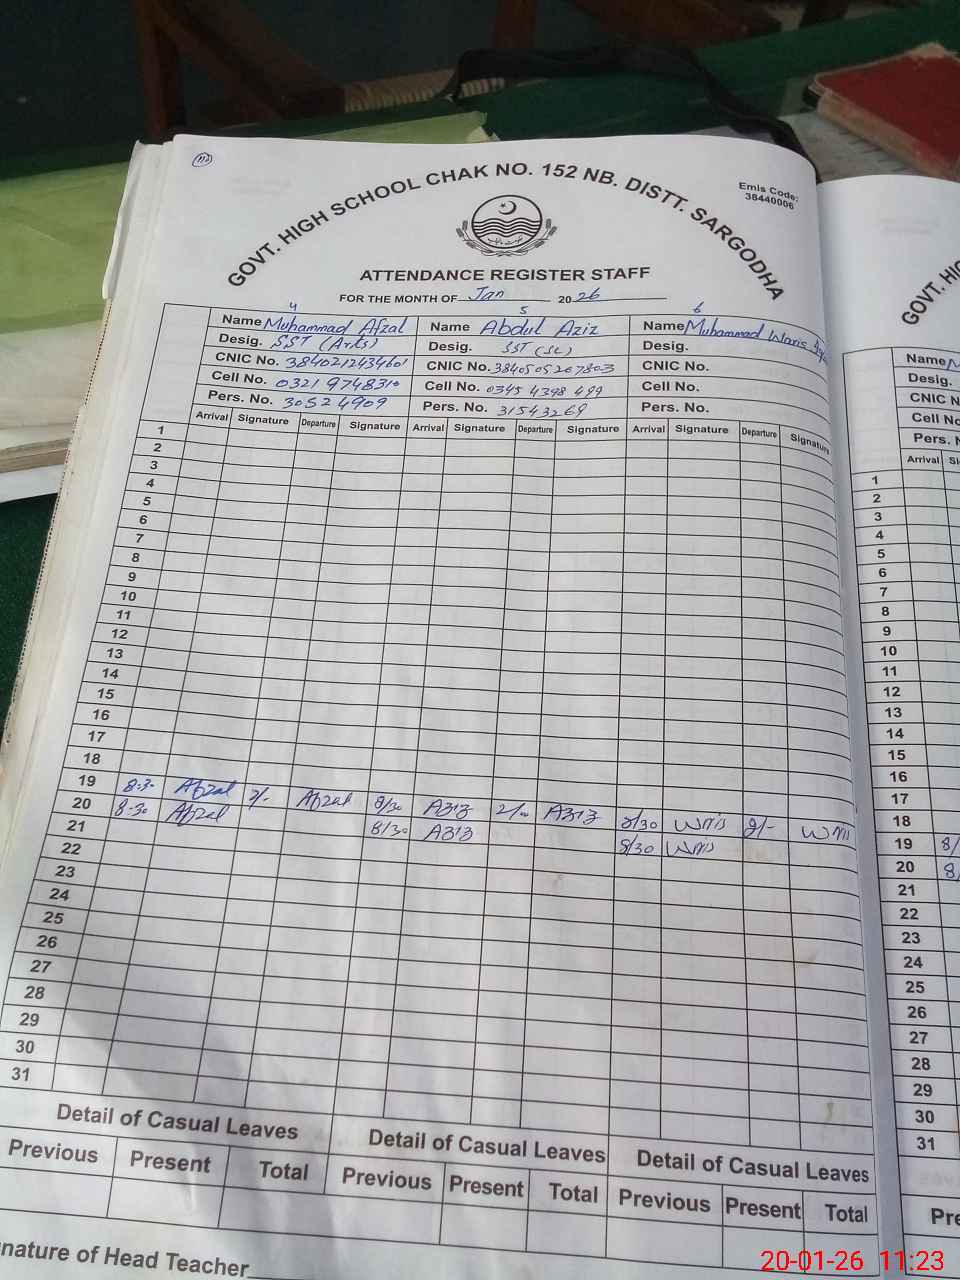 112
GOVT. HIGH SCHOOL CHAK NO. 152 NB. DISTT. SARGODHA
Emis Code:
38440006
ATTENDANCE REGISTER STAFF
FOR THE MONTH OF Jan 2026
4 5 6
Name Muhammad Afzal Name Abdul Aziz Name Muhammad Waris
Desig. SST (Arts) Desig. SST (SC) Desig.
CNIC No. 3840212434601 CNIC No. 3840505207803 CNIC No.
Cell No. 0321 9748310 Cell No. 0345 4398 499 Cell No.
Pers. No. 30524909 Pers. No. 31543269 Pers. No.
Arrival Signature Departure Signature Arrival Signature Departure Signature Arrival Signature Departure Signature
1
2
3
4
5
6
7
8
9
10
11
12
13
14
15
16
17
18
19 8:30 Afzal 2/- Afzal 8/30 Aziz 2/00 Aziz 8/30 Waris 2/- Waris
20 8:30 Afzal 8/30 Aziz 8/30 Waris
21
22
23
24
25
26
27
28
29
30
31
Detail of Casual Leaves Detail of Casual Leaves Detail of Casual Leaves
Previous Present Total Previous Present Total Previous Present Total
nature of Head Teacher
GOVT. HIG
Name
Desig.
CNIC N
Cell No
Pers. N
Arrival Si
1
2
3
4
5
6
7
8
9
10
11
12
13
14
15
16
17
18
19 8/
20 8/
21
22
23
24
25
26
27
28
29
30
31
Pre
20-01-26 11:23